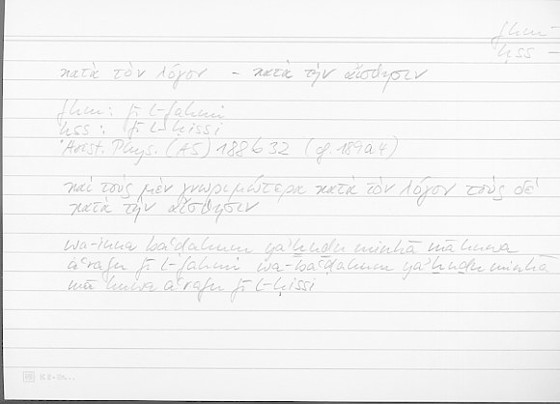 fhm –
ḥss –
κατὰ τὸν λόγον – κατὰ τὴν αἴσθησιν
fhm: fī l-fahmi
ḥss: fī l-ḥissi
Arist. Phys. (A5) 188b32 (cf. 189a4)
καὶ τοὺς μὲν γνωριμώτερα κατὰ τὸν λόγον τοὺς δὲ
κατὰ τὴν αἴσθησιν
wa-inna baʿḍahum yaʾḫuḏu minhā mā huwa
aʿrafu fī l-fahmi wa-baʿḍahum yaʾḫuḏu minhā
mā huwa aʿrafu fī l-ḥissi